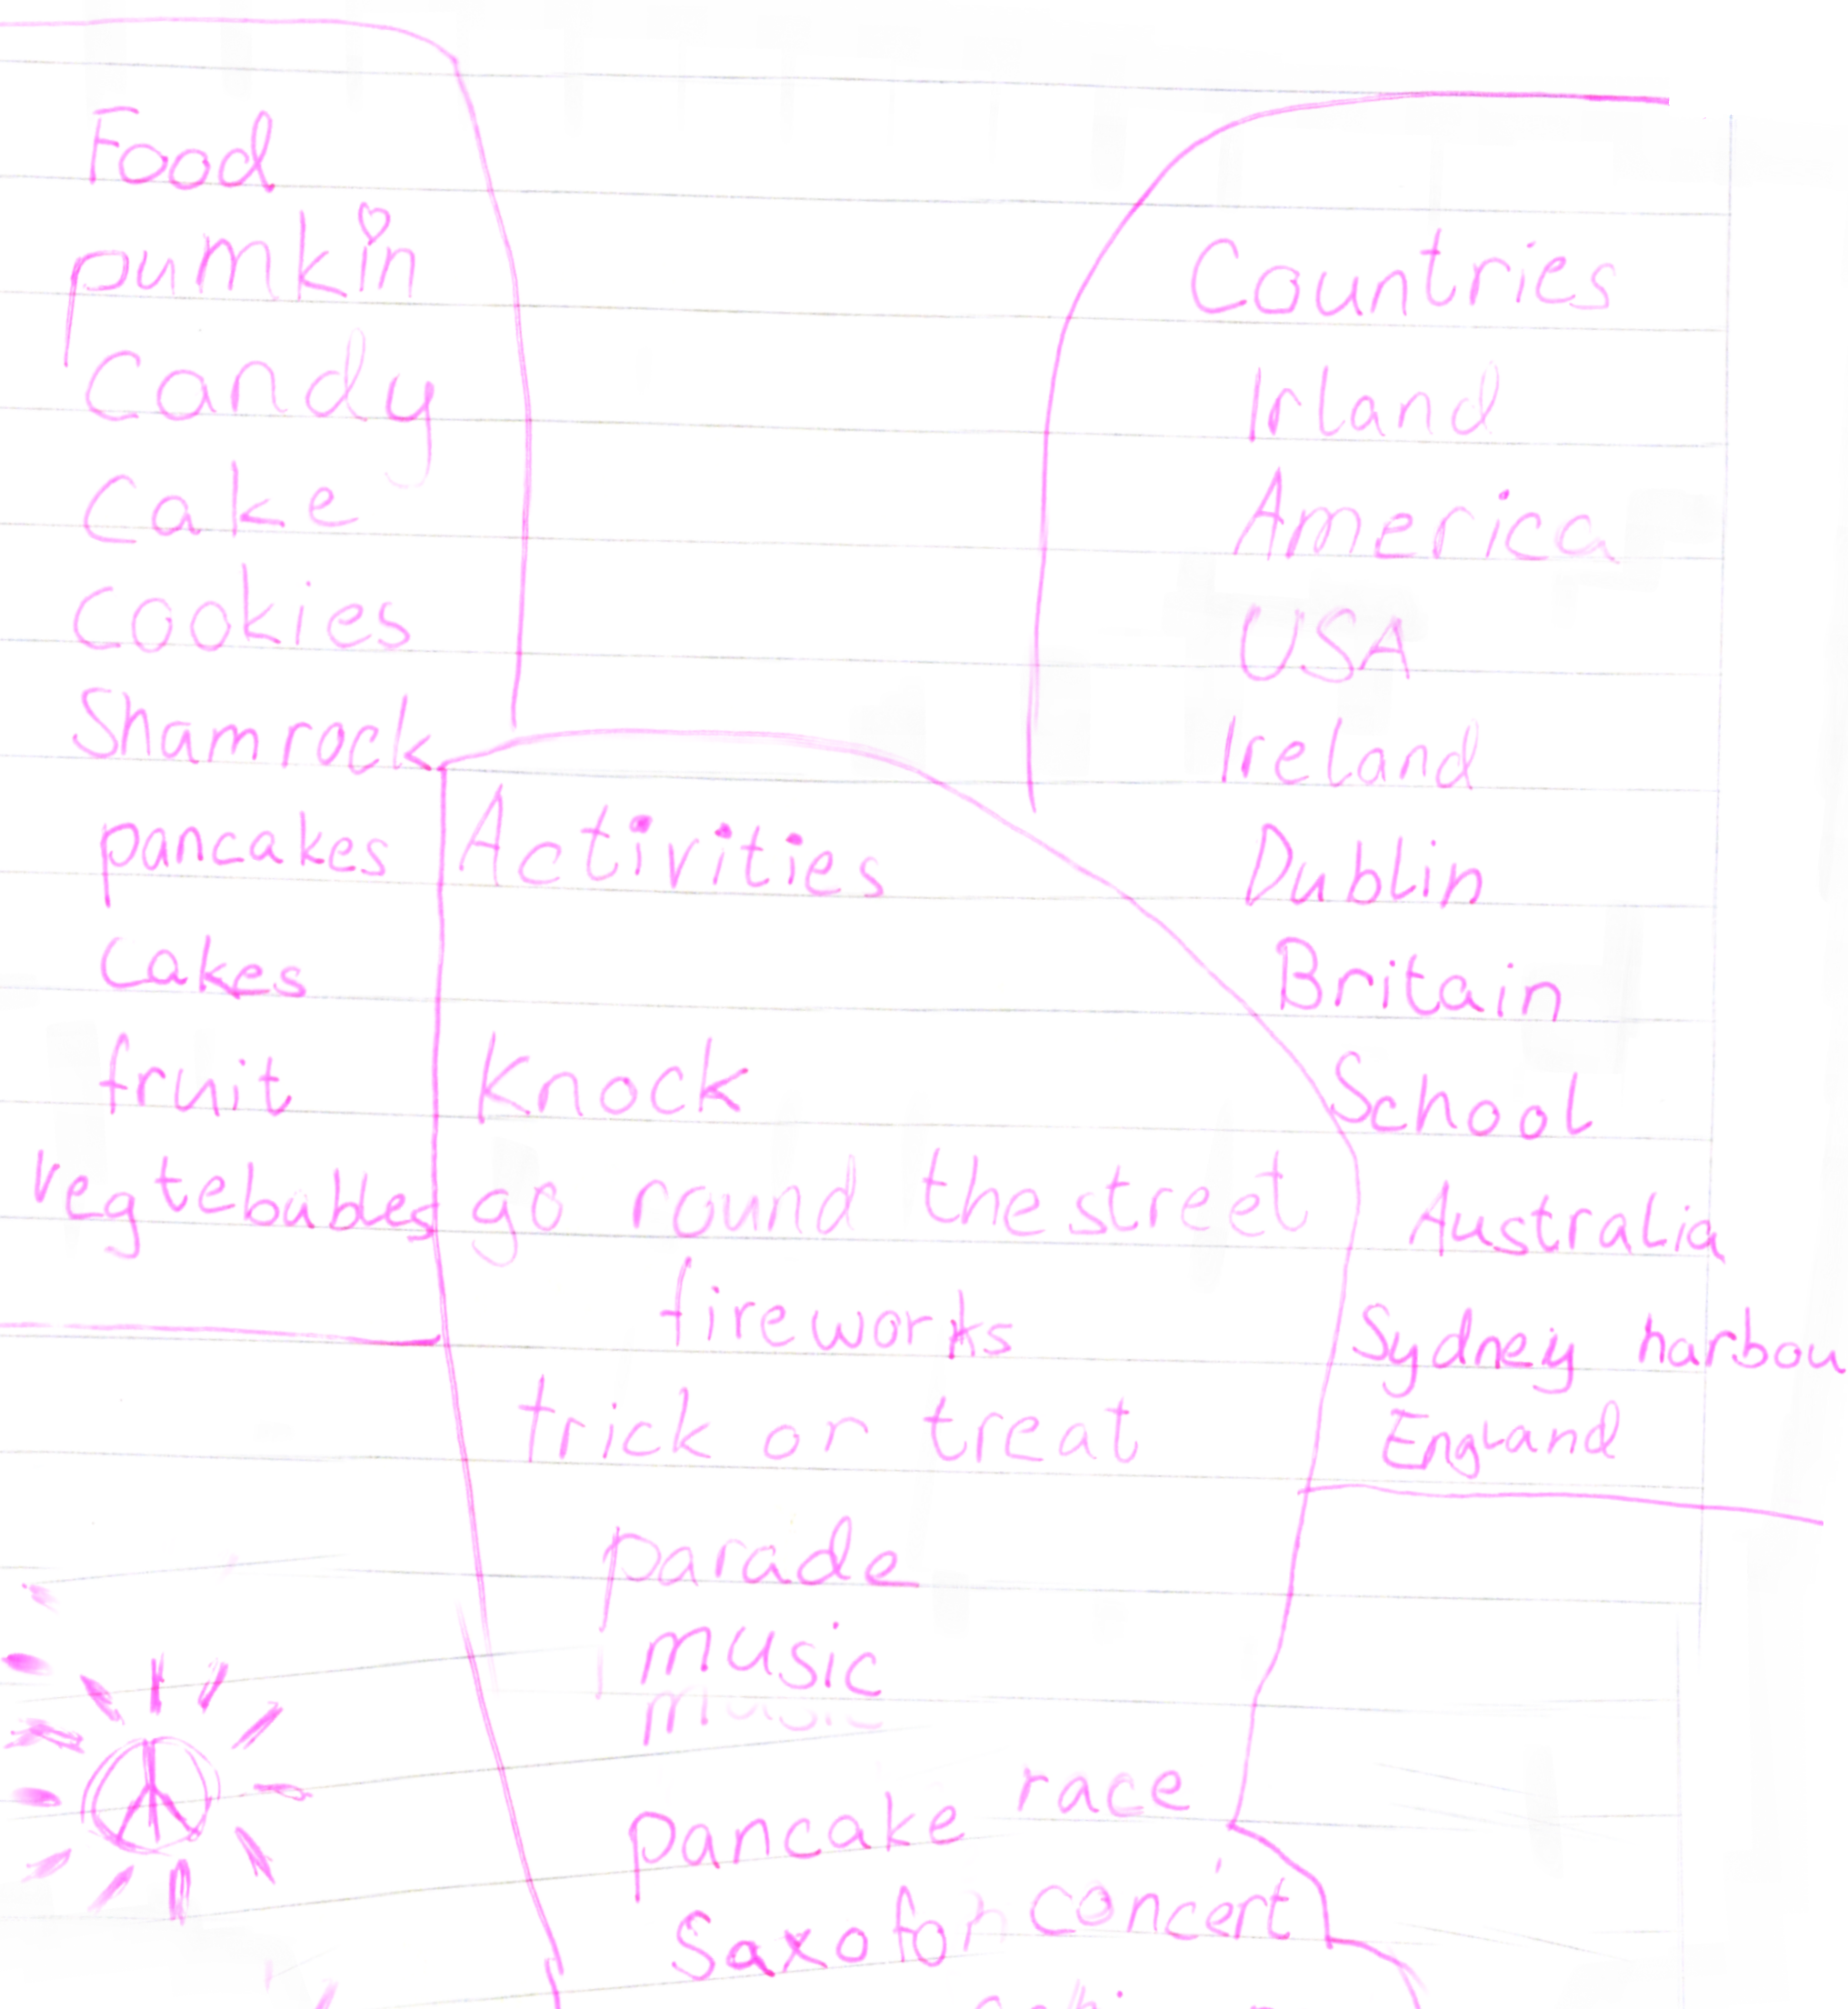 Food
pumkin
Candy
Cake
Cookies
Shamrock
pancakes
Cakes
fruit
vegtebables
Countries
Irland
America
USA
Ireland
Dublin
Britain
School
Australia
Sydney harbou
England
Activities
Knock
go round the street
fireworks
trick or treat
parade
music
music
pancake race
Saxofon concert